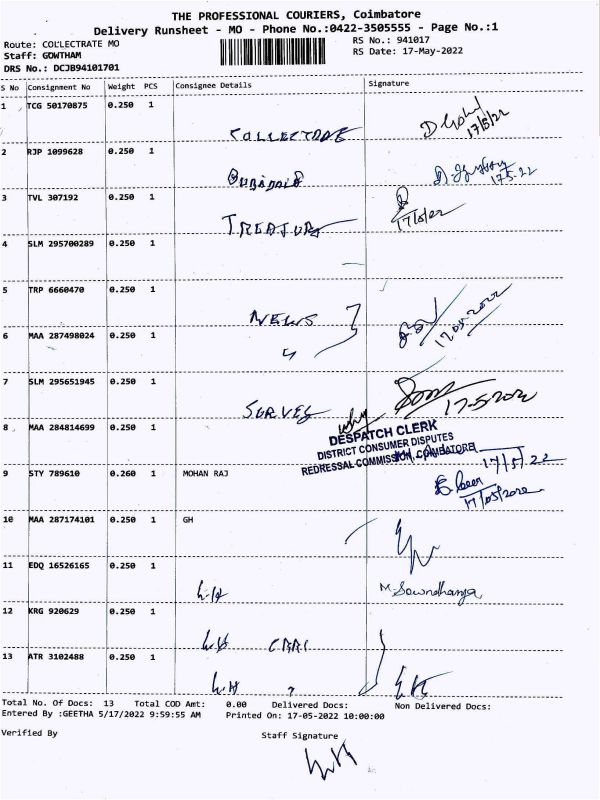 THE PROFESSIONAL COURIERS, Coimbatore
Delivery Runsheet - MO - Phone No.:0422-3505555 - Page No.:1
Route: COLLECTRATE MO
RS No.: 941017
Staff: GOWTHAM
RS Date: 17-May-2022
DRS No.: DCJB94101701
S No Consignment No Weight PCS Consignee Details Signature
1 TCG 50170875 0.250 1
COLLECTRATE 17/5/22
2 RJP 1099628 0.250 1
17.5.22
3 TVL 307192 0.250 1
17/5/22
4 SLM 295700289 0.250 1
5 TRP 6660470 0.250 1
NEWS 17.05.2022
6 MAA 287498024 0.250 1
7 SLM 295651945 0.250 1
SURVEY 17-5/2022
8 MAA 284814699 0.250 1
DESPATCH CLERK
DISTRICT CONSUMER DISPUTES
REDRESSAL COMMISSION, COIMBATORE
17/5/22
9 STY 789610 0.260 1 MOHAN RAJ
17/05/2022
10 MAA 287174101 0.250 1 GH
11 EDQ 16526165 0.250 1
M. Sowndharya
12 KRG 920629 0.250 1
13 ATR 3102488 0.250 1
Total No. Of Docs: 13 Total COD Amt: 0.00 Delivered Docs: Non Delivered Docs:
Entered By :GEETHA 5/17/2022 9:59:55 AM Printed On: 17-05-2022 10:00:00
Verified By Staff Signature